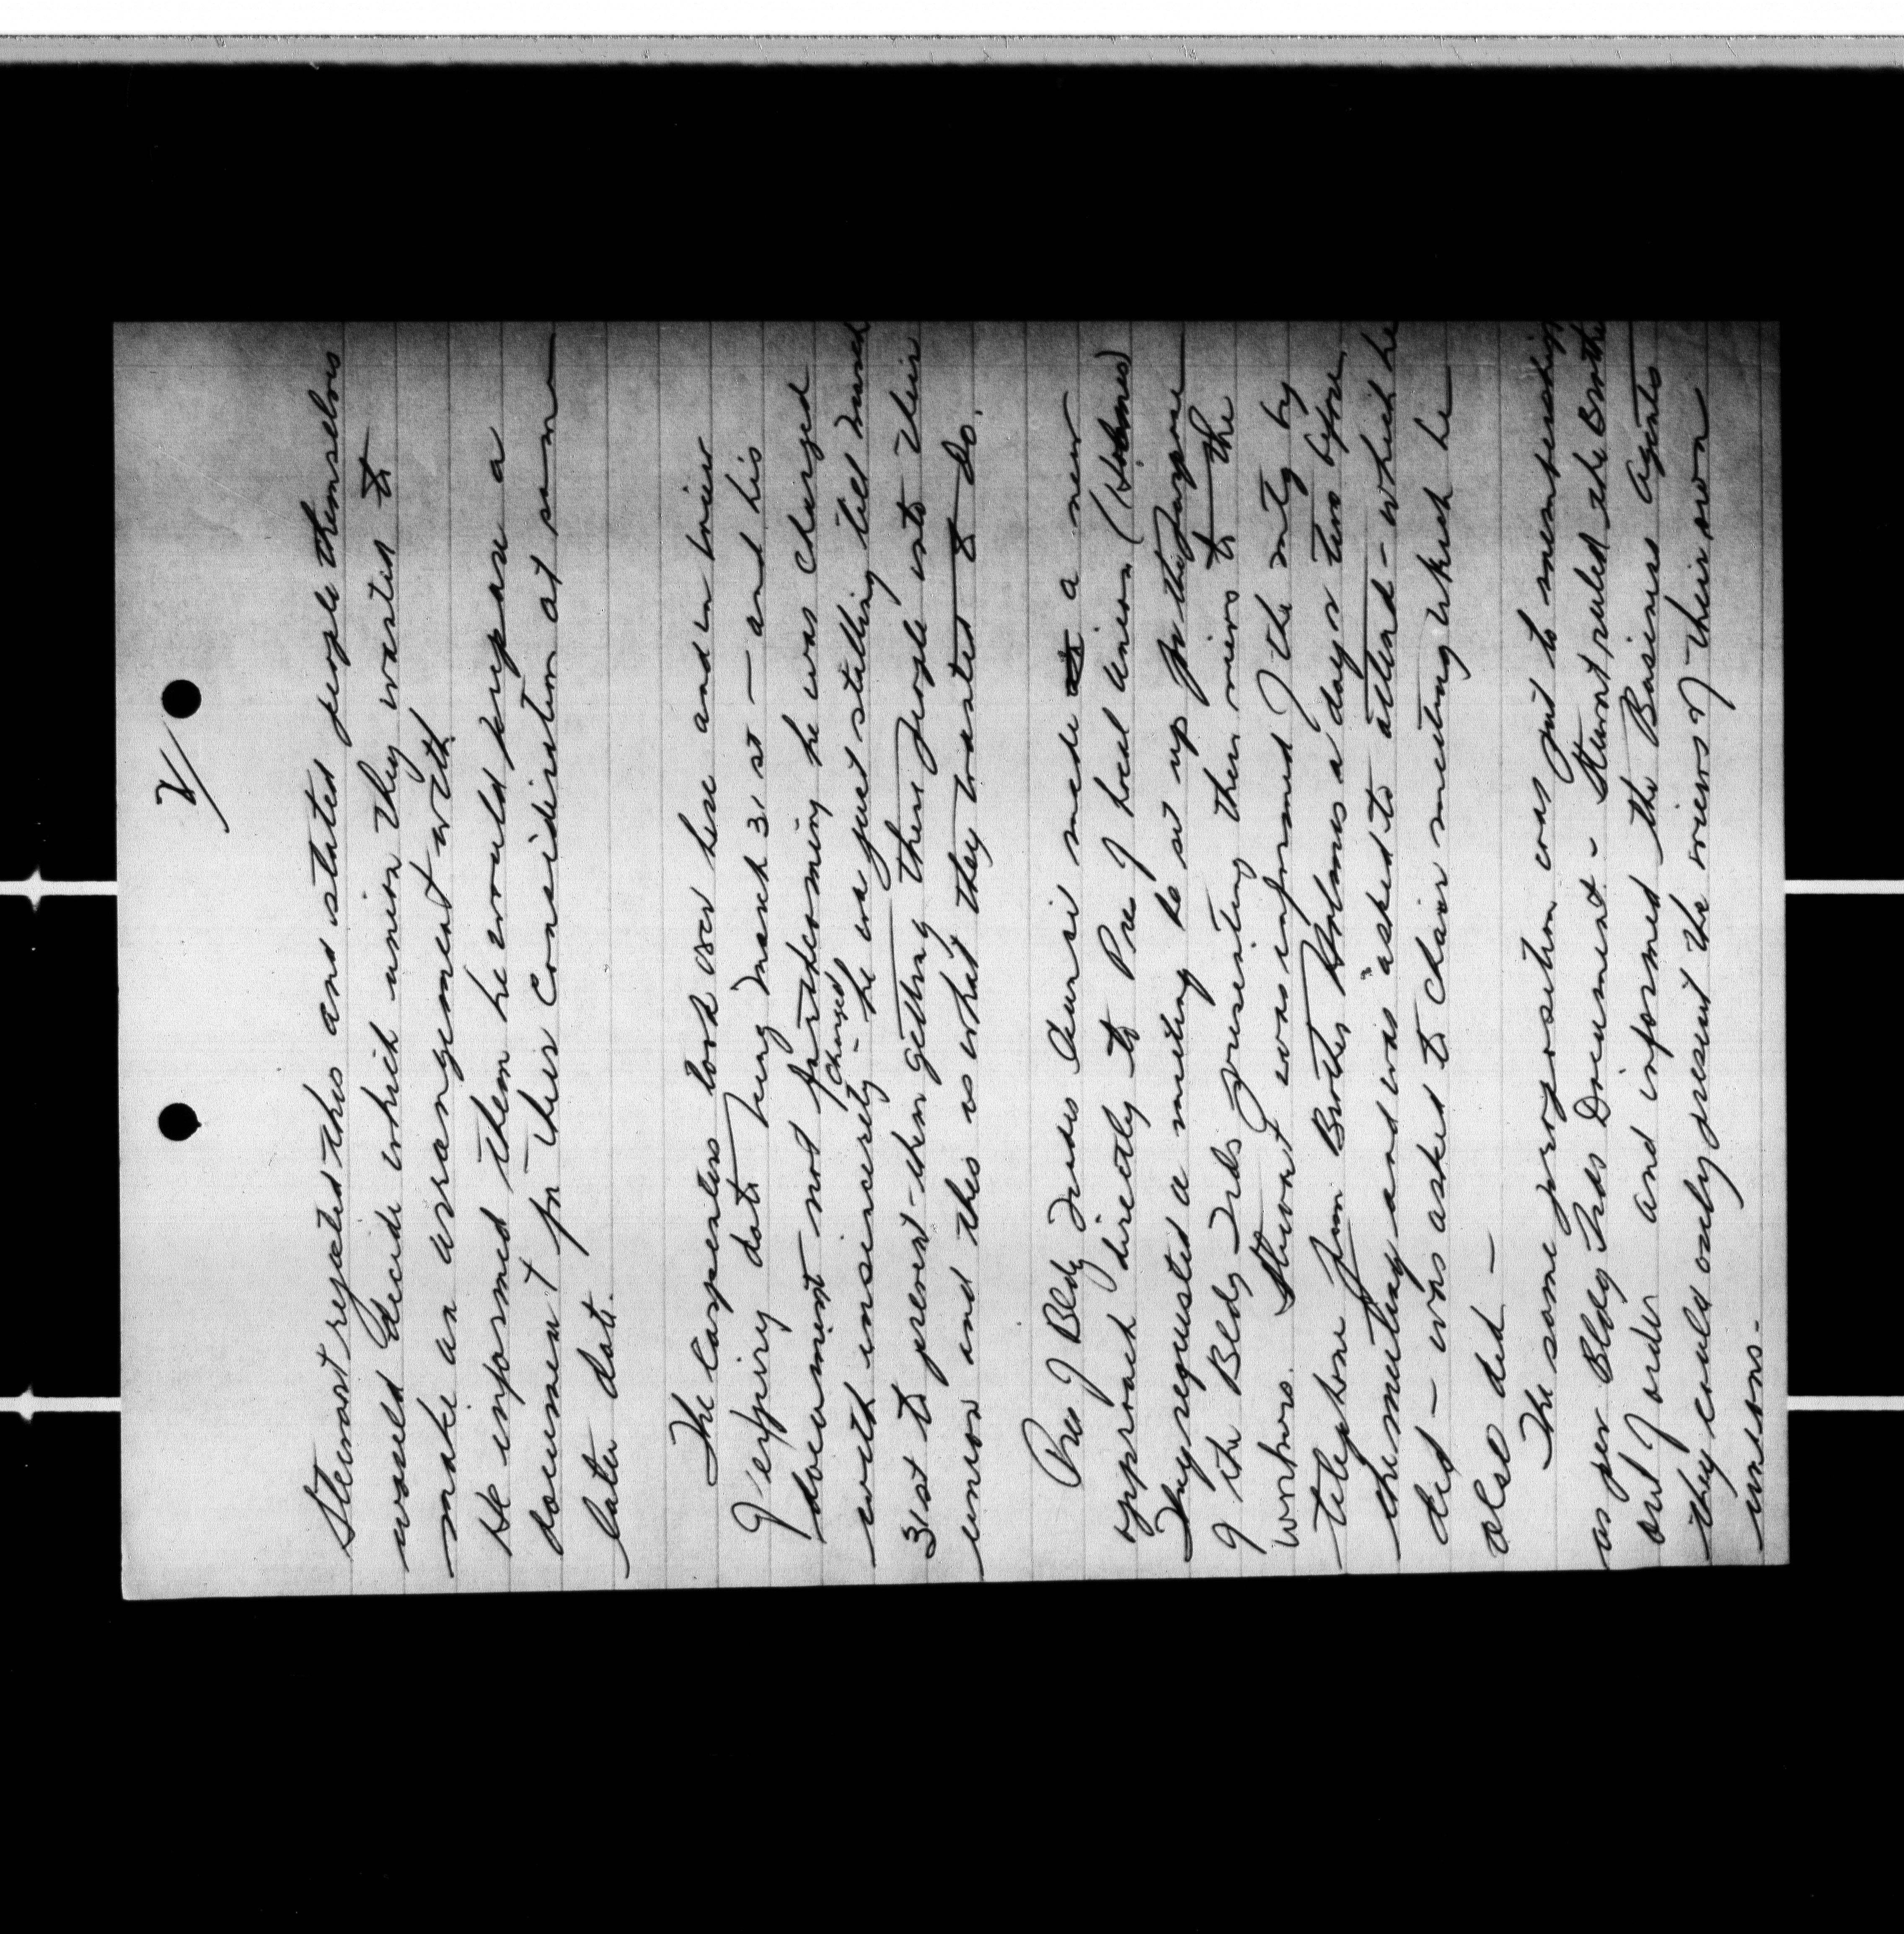 2/
Stewart rejected this and stated people themselves
would decide which union they wanted to
make an arrangement with
He informed them he would prepare a
document for their consideration at some
later date.
The Carpenters took over here and in view
of expiry date being March 31st — and his
document not forthcoming he was charged
with insincerity - Changed he was just stalling till March
31st to prevent them getting these people into their
union and this is what they wanted to do.
Pres of Bldg Trades Council made a new
approach directly to Pres of Local Union (Holmes)
They requested a meeting be set up for the purpose
of the Bldg Trds presenting their views to the
workers. Stewart was informed of the mtg by
telephone from Brother Holmes a day or two before
the meeting and was asked to attend - which he
did - was asked to chair meeting which he
also did —
The same proposition was put to membership
as per Bldg Trds Document - Stewart ruled the Brothe
out of order and informed the Business Agents
they could only present the views of their own
unions -